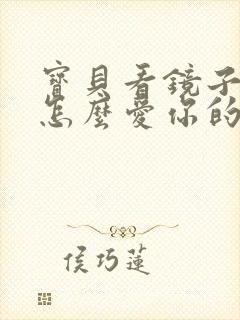 寶貝看鏡子
怎麼愛你的
侯巧蓮